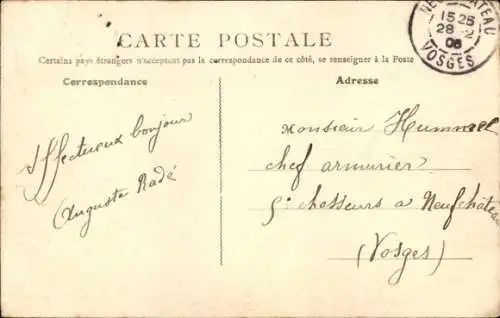 CARTE POSTALE
Certains pays étrangers n'acceptent pas la correspondance de ce côté, se renseigner à la Poste
Correspondance
Affectueux bonjour
Auguste Radé
Adresse
Monsieur Hummel
chef armurier
5e chasseurs a Neufchâteau
(Vosges)
NEUFCHATEAU
15 25
28 2
06
VOSGES